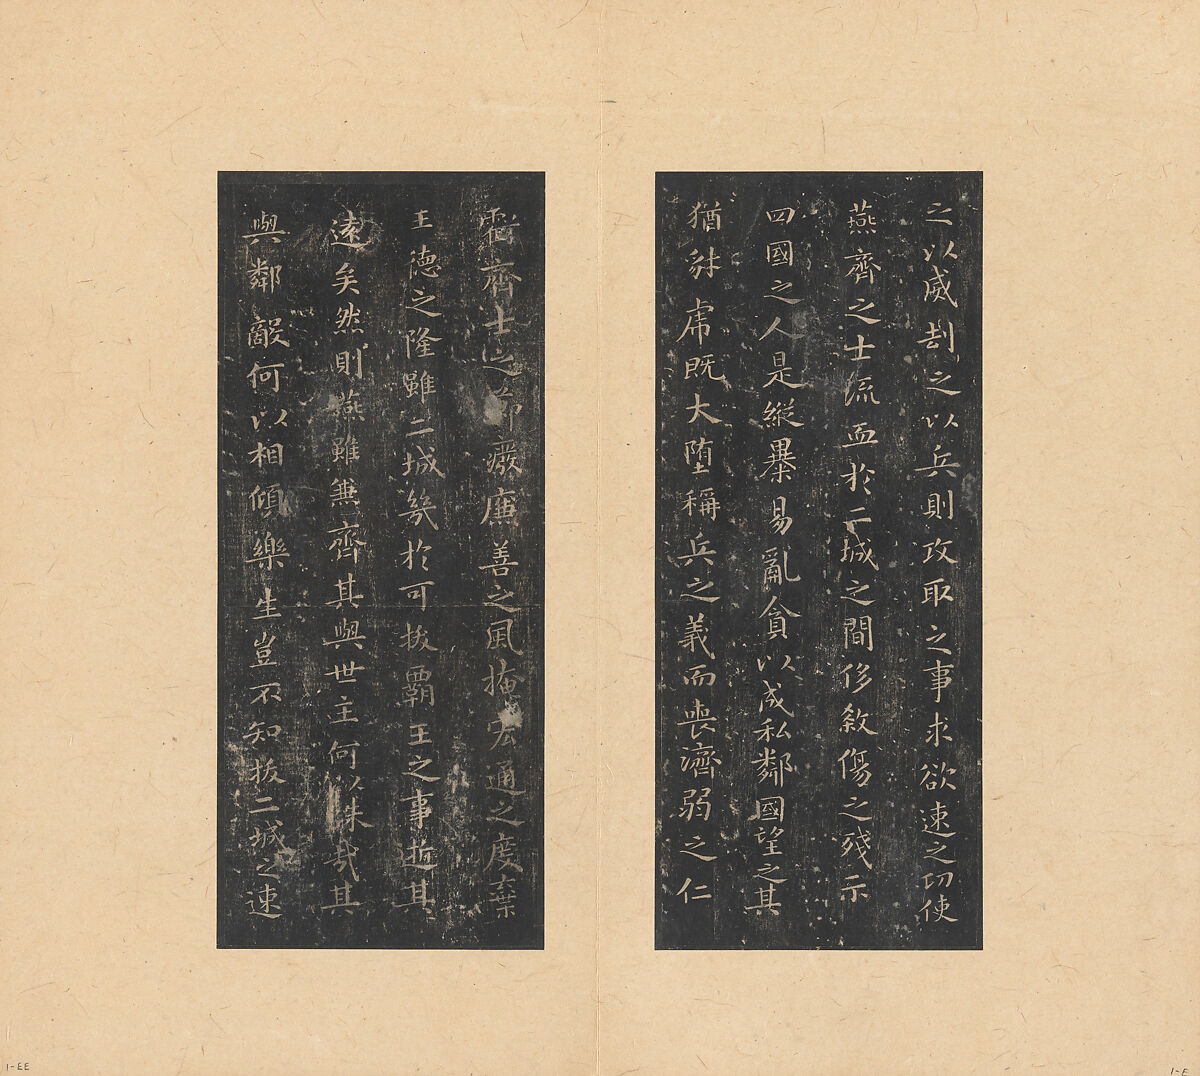 之以威刼之以兵則攻取之事求欲速之功使
燕齊之士流血於二城之間侈敘傷之殘示
四國之人是縱暴易亂貪以成私鄰國望之其
猶豺虎既大墮稱兵之義而喪濟弱之仁
虧齊士之節廢廉善之風掩宏通之度棄
王德之隆雖二城幾於可拔霸王之事逝其
遠矣然則燕雖兼齊其與世主何以殊哉其
與鄰敵何以相傾樂生豈不知拔二城之速
1-EE
1-E